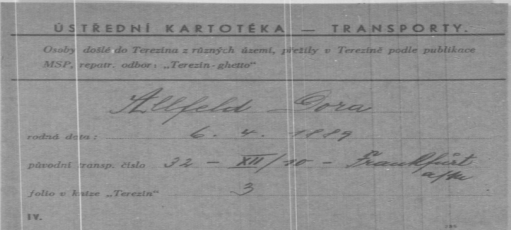 ÚSTŘEDNÍ KARTOTÉKA — TRANSPORTY.
Osoby došlé do Terezína z různých území, přežily v Terezíně podle publikace
MSP, repatr. odbor: „Terezín-ghetto"
Allfeld Dora
rodná data: 6. 4. 1889
původní transp. čísla 32 - XII/10 - Frankfurt
a/M
folio v knize „Terezín" 3
IV.